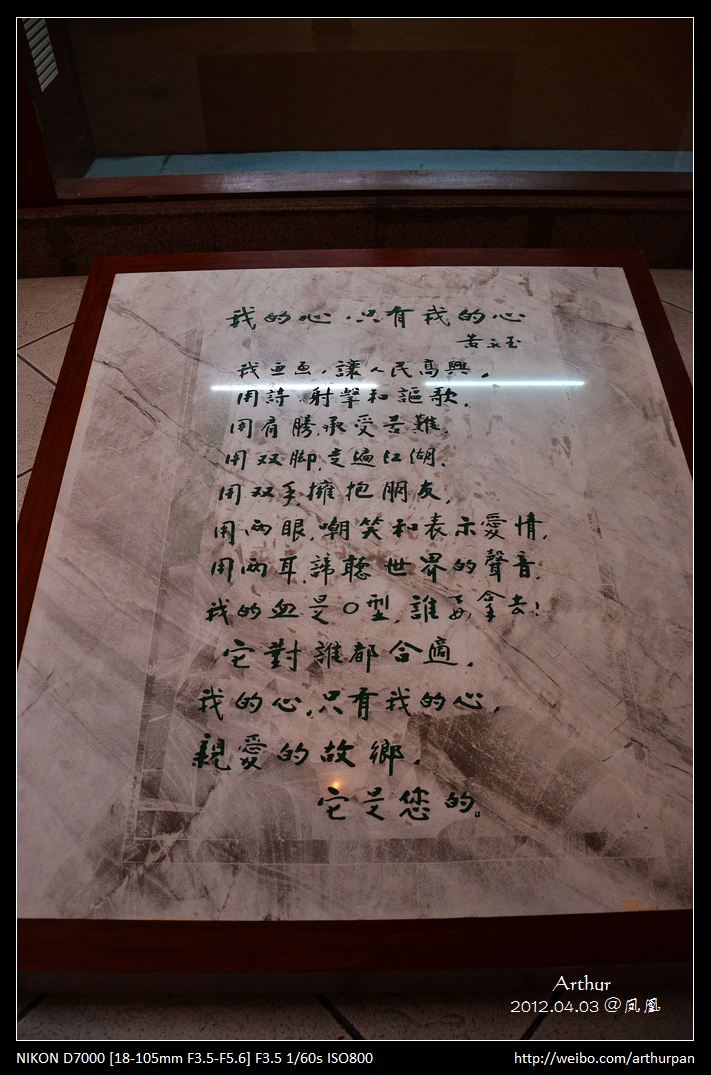 我的心，只有我的心
黄永玉
我画画，讓人民高興，
用詩，射擊和謳歌，
用肩膀，承受苦難，
用双脚，走遍江湖，
用双手擁抱朋友，
用兩眼，嘲笑和表示愛情，
用兩耳，諦聽世界的聲音，
我的血是O型，誰要拿去！
它對誰都合適，
我的心，只有我的心，
親愛的故鄉，
它是您的。
Arthur
2012.04.03 @凤凰
NIKON D7000 [18-105mm F3.5-F5.6] F3.5 1/60s ISO800
http://weibo.com/arthurpan